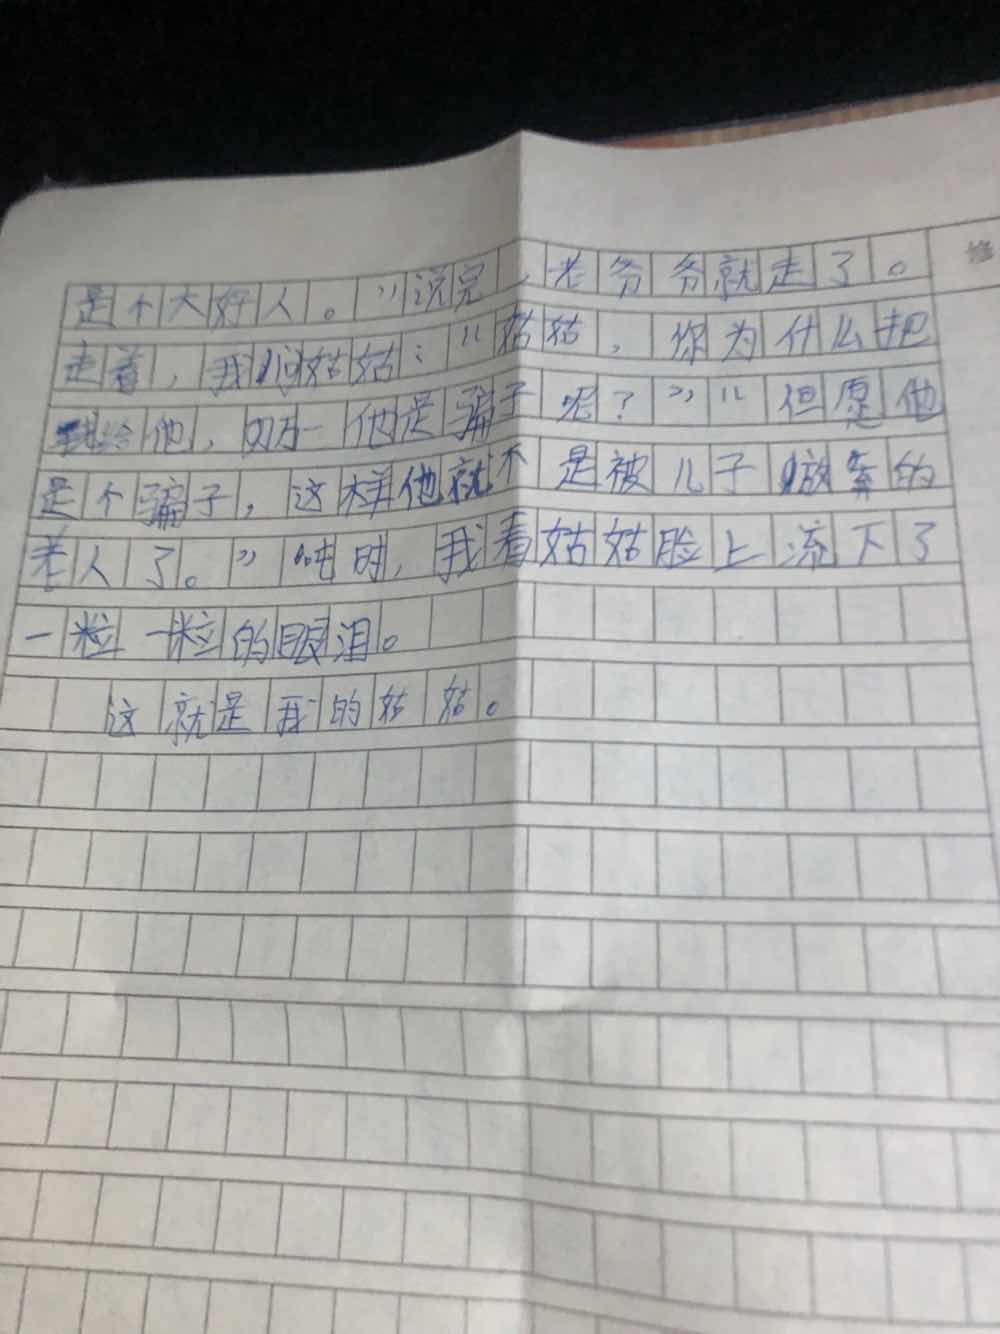 是个大好人。”说完，老爷爷就走了。
走着，我问姑姑：“姑姑，你为什么把
钱给他，万一他是骗子呢？”“但愿他
是个骗子，这样他就不是被儿子放弃的
老人了。”吨时，我看姑姑脸上流下了
一粒一粒的眼泪。
这就是我的姑姑。